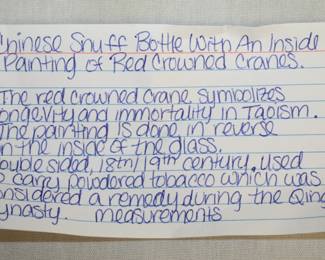 Chinese Snuff Bottle With An Inside
Painting of Red Crowned Cranes.
The red crowned crane symbolizes
longevity and immortality in Taoism.
The painting is done in reverse
on the inside of the glass.
Double sided, 18th/19th century. used
to carry powdered tobacco which was
considered a remedy during the Qing
Dynasty. measurements